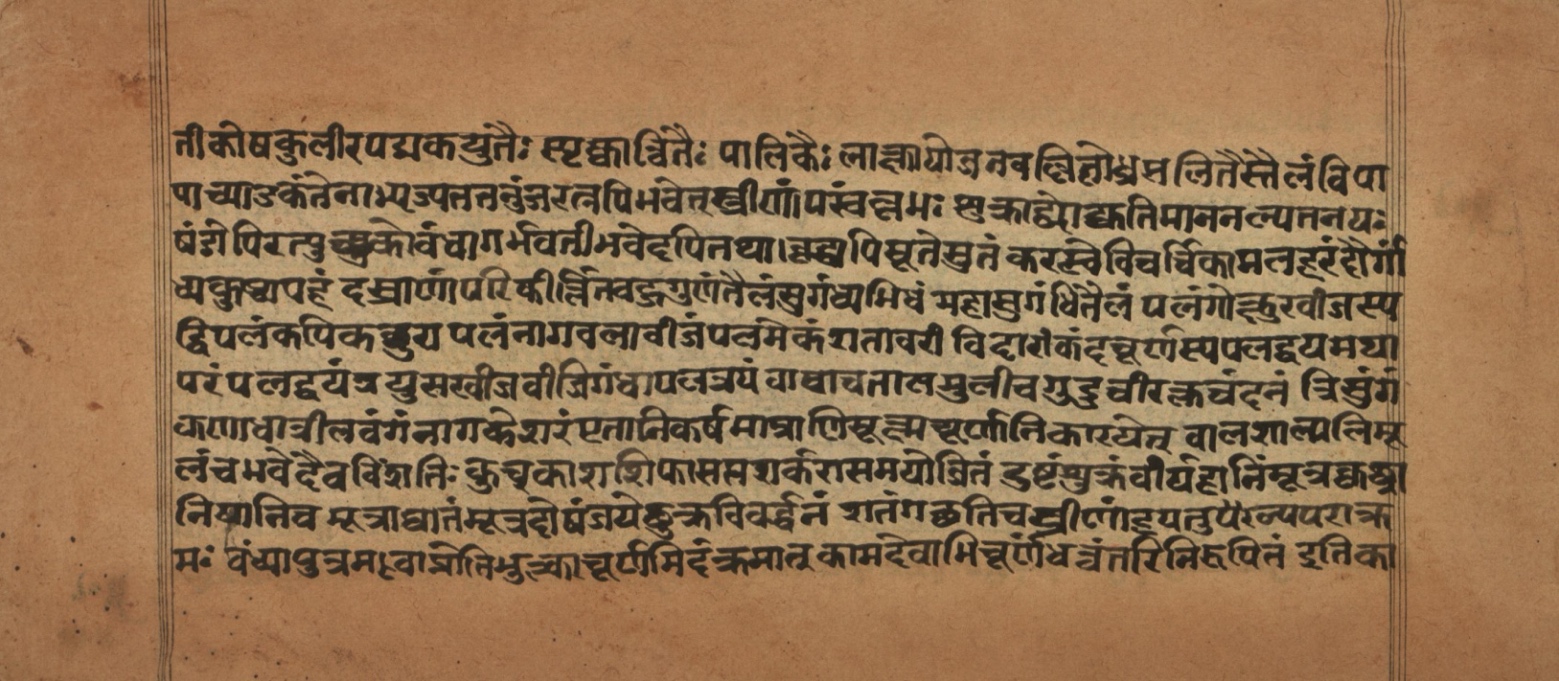 तीकोषकुलीरपद्मकयुतैः स्पृक्कान्वितैः पालिकैः लाक्षायोजनवल्लितोध्रसलितैस्तैलंविपा
पाच्याऽकंतेनाभ्यज्यतनतनुंजरत्नपिभवेत्स्त्रीणांपरंवल्लभः शुक्राढ्योद्युतिमाननल्पतनयः
षंढोपिरत्युत्सुकोवंध्यागर्भवतीभवेदपितथावृद्धापिसूतेसुतं करस्वेविचर्चिकामलहरंदौर्गं
ध्यकुष्टापहं दस्राणांपरिकीर्त्तितंवहुगुणंतैलंसुगंध्यभिधं महासुगंधिंतैलं पलंगोक्षुरवीजस्य
द्विपलंकपिकच्छुरा पलंनागवलावीजंपलमेकंशतावरी विदारीकंदचूर्णस्यपलद्वयमथा
परंपलद्वयंत्रयुसखीजवीजिगंधापलत्रयं वाषाचतालमुलीचगुडुचीरक्तचंदनं त्रिसुंगं
कणाधात्रीलवंगंनागकेशरंएतानिकर्षमात्राणिसूक्ष्मचूर्णानिकारयेत् वालशाल्मलिमू
लंचभवेदैवविंशतिः कुचुकाशशिफासप्तशर्करासमयोजितं दुष्टंशुक्रंवीर्यहानिंमूत्रकृच्छ्रा
नियानिच मूत्राघातंमूत्रदोषंजयेछुक्रविवर्द्धनं शतंगच्छतिचस्त्रीणांहयतुल्यपराक्र
मः वंध्यापुत्रमवाप्नोतिभुक्त्वाचूर्णमिदंक्रमात् कामदेवाभिचूर्णंधन्वंतरिनिरूपितं इतिका